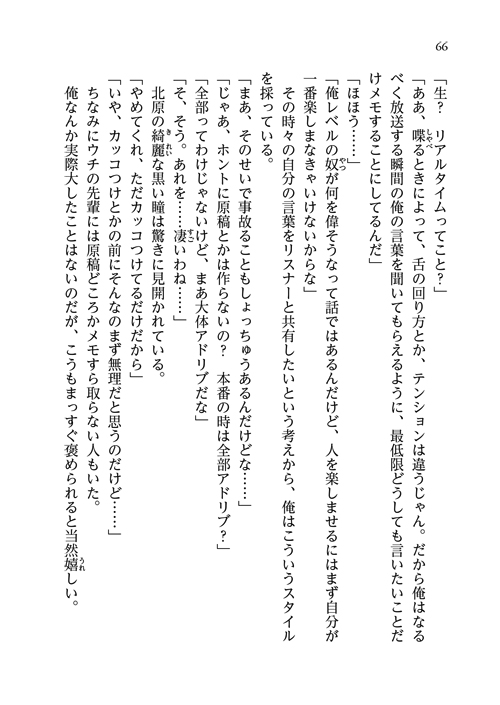 66
「生？　リアルタイムってこと？」
「ああ、喋るときによって、舌の回り方とか、テンションは違うじゃん。だから俺はなる
べく放送する瞬間の俺の言葉を聞いてもらえるように、最低限どうしても言いたいことだ
けメモすることにしてるんだ」
「ほほう……」
「俺レベルの奴が何を偉そうなって話ではあるんだけど、人を楽しませるにはまず自分が
一番楽しまなきゃいけないからな」
　その時々の自分の言葉をリスナーと共有したいという考えから、俺はこういうスタイル
を採っている。
「まあ、そのせいで事故ることもしょっちゅうあるんだけどな……」
「じゃあ、ホントに原稿とかは作らないの？　本番の時は全部アドリブ？」
「全部ってわけじゃないけど、まあ大体アドリブだな」
「そ、そう。あれを……凄いわね……」
　北原の綺麗な黒い瞳は驚きに見開かれている。
「やめてくれ、ただカッコつけてるだけだから」
「いや、カッコつけとかの前にそんなのまず無理だと思うのだけど……」
　ちなみにウチの先輩には原稿どころかメモすら取らない人もいた。
　俺なんか実際大したことはないのだが、こうもまっすぐ褒められると当然嬉しい。